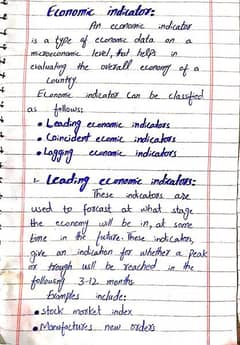 Economic indicator:
An economic indicator
is a type of economic data on a
microeconomic level, that helps in
evaluating the overall economy of a
country.
Economic indicator can be classfied
as follows:
• Leading economic indicators
• Coincident ecomic indicators
• Lagging economic indicators
1- Leading economic indicators:
These indicators are
used to forcast at what stage
the economy will be in, at some
time in the future. These indicators,
give an indication for whether a peak
or trough will be reached in the
following 3-12 months.
Examples include:
• stock market index
• Manufactures new orders